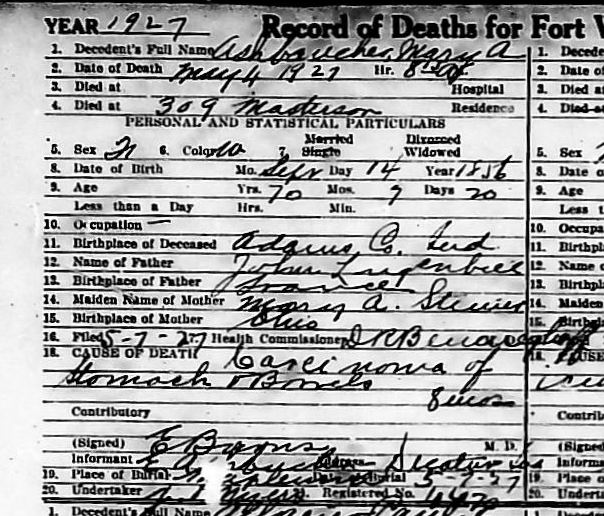 YEAR 1927 Record of Deaths for Fort W
1. Decedent's Full Name Ashbaucher Mary A
2. Date of Death May 4 1927 Hr. 8
3. Died at Hospital
4. Died at 309 Masterson Residence
PERSONAL AND STATISTICAL PARTICULARS
5. Sex 6. Color W 7. Married Single Divorced Widowed
8. Date of Birth Mo. Sept Day 14 Year 1856
9. Age Yrs. 70 Mos. 7 Days 20
Less than a Day Hrs. Min.
10. Occupation —
11. Birthplace of Deceased Adams Co. Ind
12. Name of Father John Lugenbiel
13. Birthplace of Father France
14. Maiden Name of Mother Mary A. Steiner
15. Birthplace of Mother Ohio
16. Filed 5-7-27 Health Commissioner
18. CAUSE OF DEATH Carcinoma of
Stomach & Bowels
8 mos
Contributory
(Signed) E M. D.
Informant Address Decatur Ind
19. Place of Burial Date Burial 5-7-27
20. Undertaker Registered No.
1. Decedent's Full Name
1. Decede
2. Date of
3. Died at
4. Died at
5. Sex
8. Date o
9. Age
Less t
10. Occupa
11. Birthpl
12. Name
13. Birthpl
14. Maiden
15. Birthpl
Contrib
(Signed)
Informa
19. Place
20. Undert